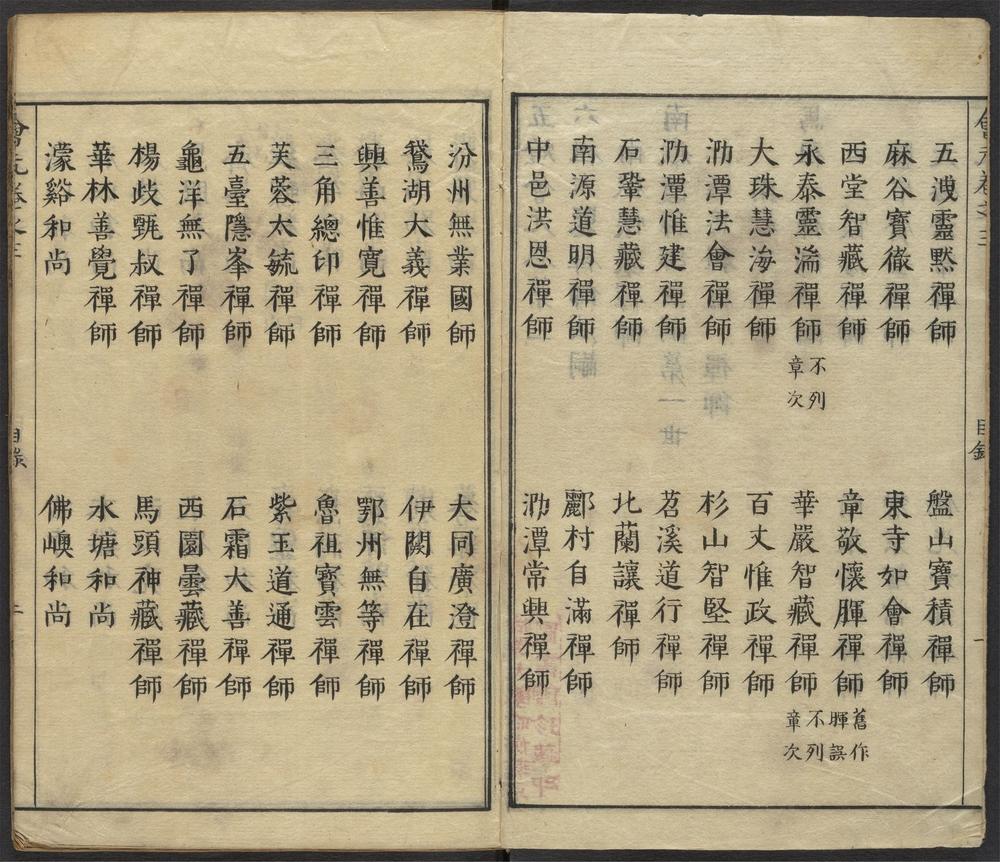 會元卷之三
目錄
一
五洩靈默禪師 盤山寶積禪師
麻谷寶徹禪師 東寺如會禪師
西堂智藏禪師 章敬懷暉禪師舊作暉誤
永泰靈湍禪師不列章次 華嚴智藏禪師不列章次
大珠慧海禪師 百丈惟政禪師
泐潭法會禪師 杉山智堅禪師
泐潭惟建禪師 茗溪道行禪師
石鞏慧藏禪師 北蘭讓禪師
南源道明禪師 酈村自滿禪師
中邑洪恩禪師 泐潭常興禪師
汾州無業國師 大同廣澄禪師
鵞湖大義禪師 伊闕自在禪師
興善惟寬禪師 鄂州無等禪師
三角總印禪師 魯祖寶雲禪師
芙蓉太毓禪師 紫玉道通禪師
五臺隱峯禪師 石霜大善禪師
龜洋無了禪師 西園曇藏禪師
楊歧甄叔禪師 馬頭神藏禪師
華林善覺禪師 水塘和尚
濛谿和尚 佛㠗和尚
會元卷之三
目錄
二